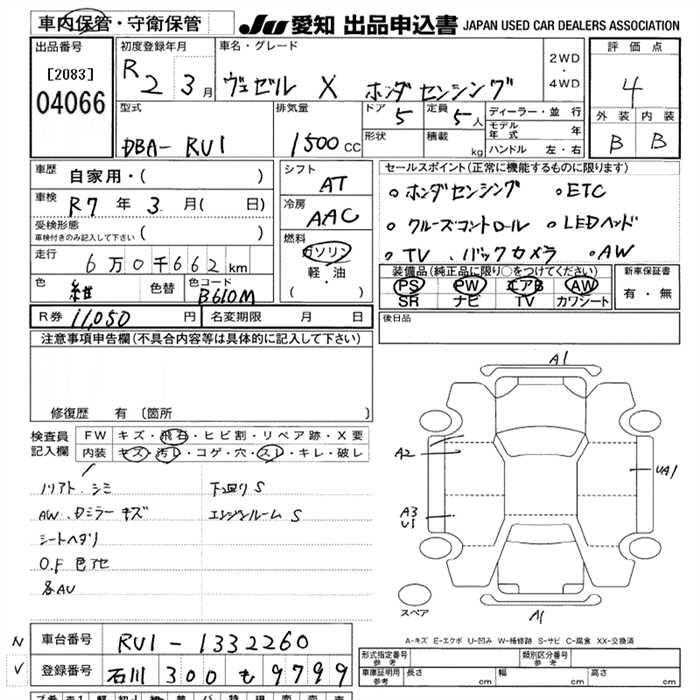 車内保管・守衛保管
JU 愛知 出品申込書 JAPAN USED CAR DEALERS ASSOCIATION
出品番号
[2083]
04066
初度登録年月
R 2 3月
車名・グレード
ヴェゼル X ホンダセンシング
2WD
・
4WD
評価点
4
外装 内装
B B
型式
DBA- RU1
排気量
1500 CC
ドア 5
定員 5人
形状
積載 kg
ディーラー・並行
モデル年式 年
ハンドル 左・右
車歴
自家用・( )
車検
R7年 3月( 日)
受検形態
車検付きのみ記入して下さい ( )
走行
6万0千662km
色
紺
色替
色コード
B610M
シフト
AT
冷房
AAC
燃料
ガソリン
・
軽・油
( )
セールスポイント(正常に機能するものに限ります)
○ ホンダセンシング ○ ETC
○ クルーズコントロール ○ LEDヘッド
○ TV、バックカメラ ○ AW
装備品(純正品に限り○をつけてください)
PS PW エアB AW
SR ナビ TV カワシート
新車保証書
有・無
R券 11,050円 名変期限 月 日
後日品
注意事項申告欄(不具合内容等は具体的に記入して下さい)
修復歴 有 [箇所 ]
検査員
記入欄
FW キズ・飛石・ヒビ割・リペア跡・X要
内装 キズ・汚レ・コゲ・穴・スレ・キレ・破レ
シミ 下廻り S
AW、Dミラー キズ エンジンルーム S
シートヘタリ
O.F 色アセ
各AU
A1
A2
UA1
A3
U1
A1
スペア
A-キズ E-エクボ U-凹み W-補修跡 S-サビ C-腐食 XX-交換済
N 車台番号 RU1-1332260
V 登録番号 石川 300 も 9799
形式指定番号
参考
類別区分番号
参考
車庫証明用
参考
長さ cm 幅 cm 高さ cm